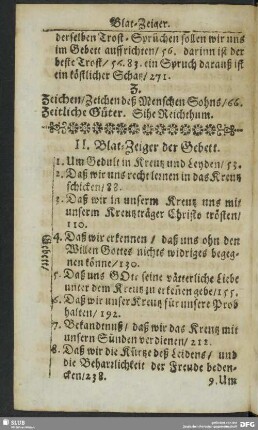 Blat-Zeiger.
derselben Trost-Sprüchen sollen wir uns
im Gebett auffrichten/56. darinn ist der
beste Trost/56.83. ein Spruch darauß ist
ein köstlicher Schaz/271.
Z.
Zeichen/Zeichen deß Menschen Sohns/66.
Zeitliche Güter. Sihe Reichthum.
II. Blat-Zeiger der Gebett.
1. Um Gedult in Kreutz und Leyden/53.
2. Daß wir uns recht lernen in das Kreutz
schicken/88.
3. Daß wir in unserm Kreutz uns mit
unserm Kreutzträger Christo trösten/
110.
4. Daß wir erkennen/ daß uns ohn den
Willen Gottes nichts widriges begeg-
nen könne/130.
5. Daß uns GOtt seine vätterliche Liebe
unter dem Kreutz zu erkeñen gebe/155.
6. Daß wir unser Kreutz für unsere Prob
halten/192.
7. Bekandtnuß/ daß wir das Kreutz mit
unsern Sünden verdienen/212.
8. Daß wir die Kürtze deß Leidens/ und
die Beharrlichkeit der Freude beden-
cken/238.
9. Um
Gebett/
SLUB
DFG